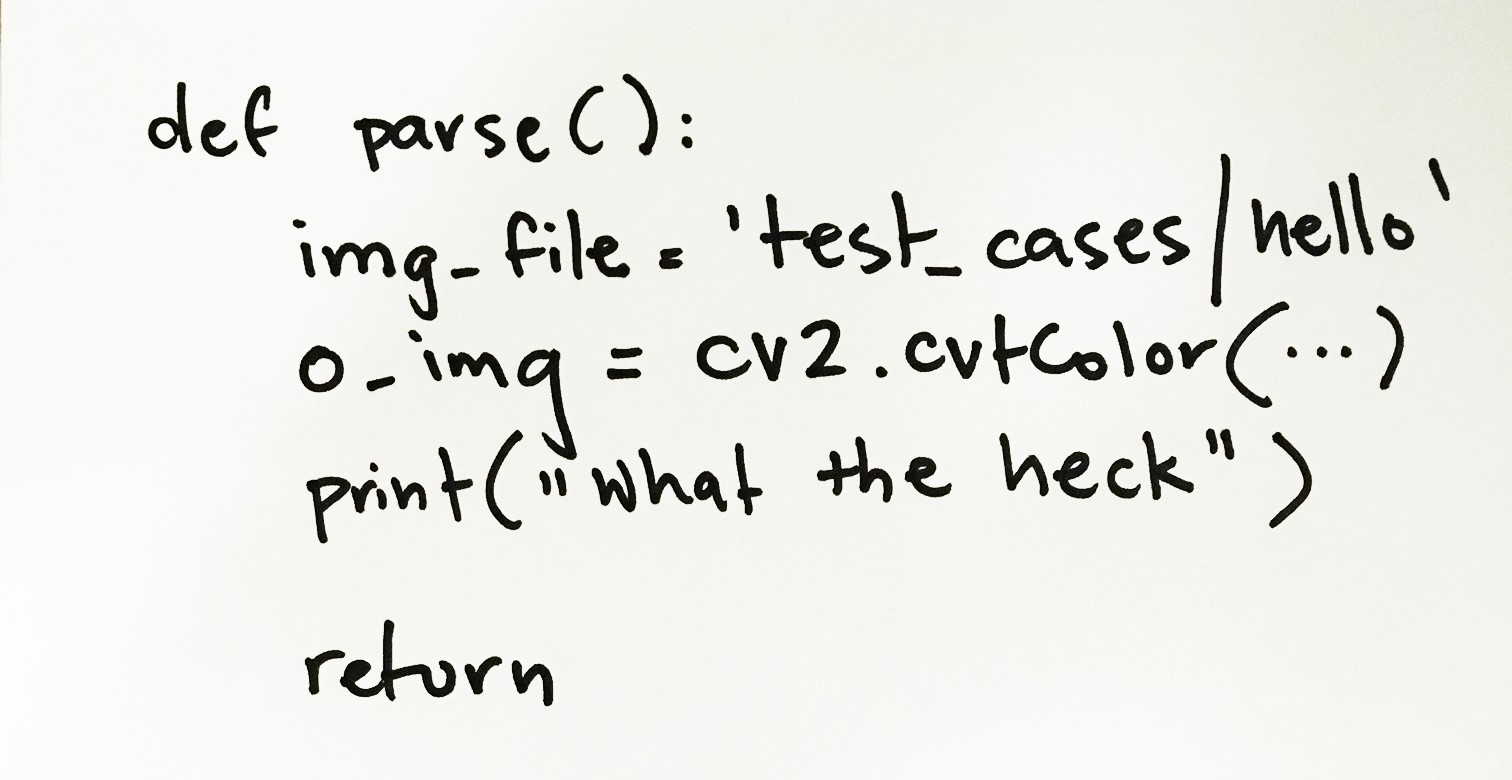 def parse():
    img_file = 'test_cases/hello'
    o_img = cv2.cvtColor(...)
    print("what the heck")
    return